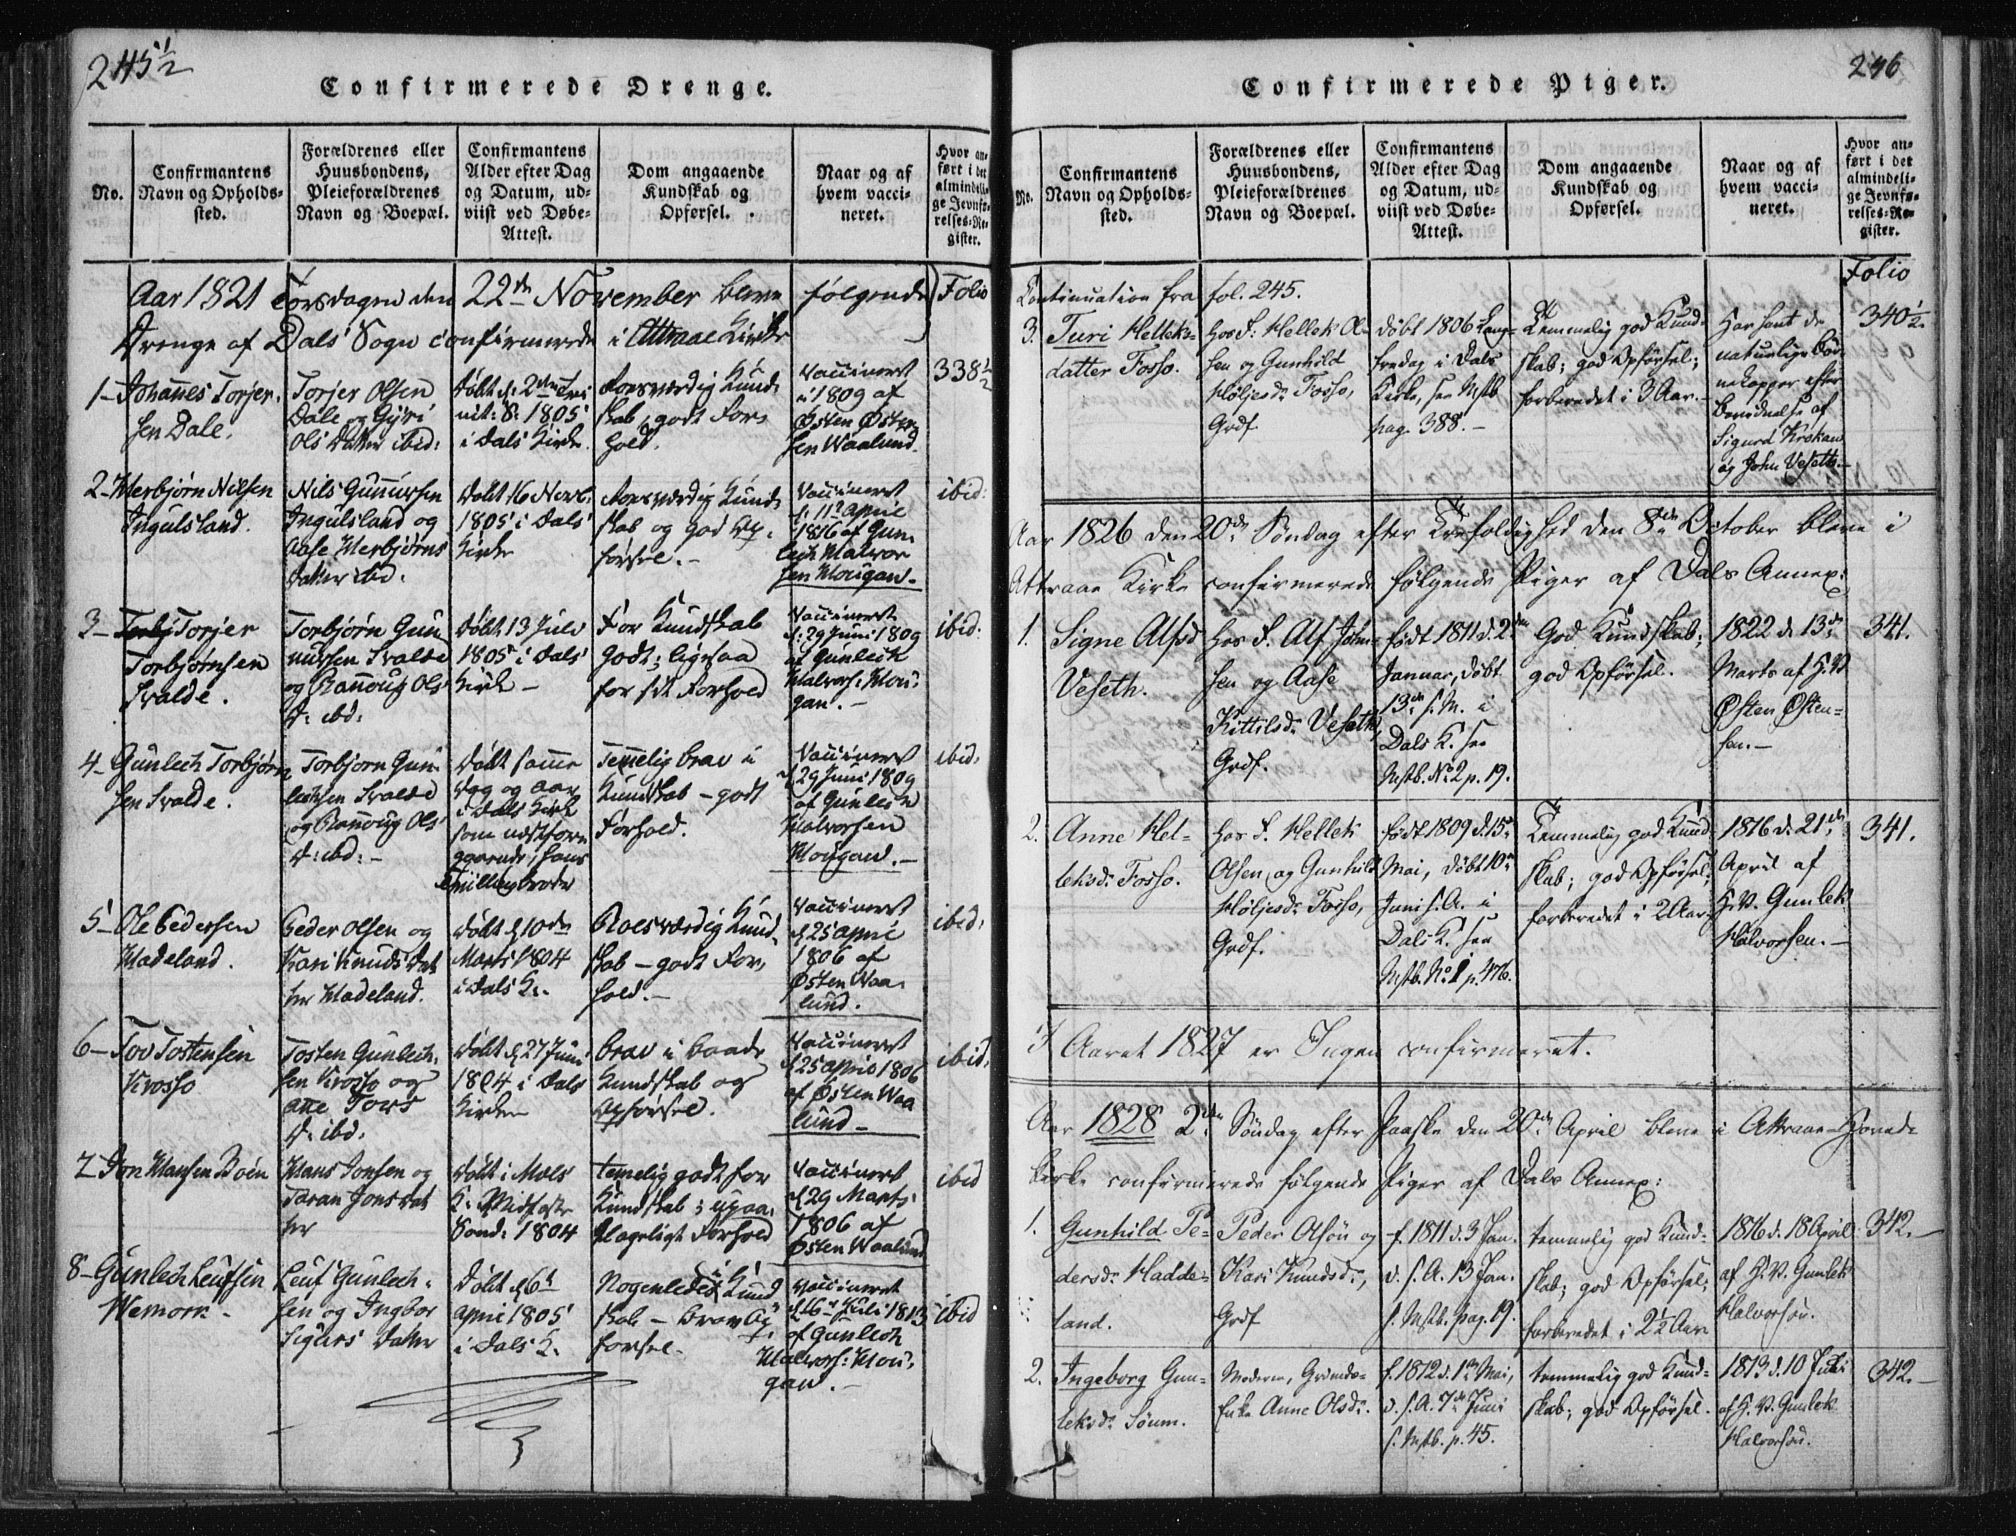 245½
Confirmerede Drenge.
No.
Confirmantens
Navn og Opholds-
sted.
Forældrenes eller
Huusbondens,
Pleieforældrenes
Navn og Boepæl.
Confirmantens
Alder efter Dag
og Datum, ud-
viist ved Døbe-
Attest.
Dom angaaende
Kundskab og
Opførsel.
Naar og af
hvem vacci-
neret.
Hvor an-
ført i det
almindeli-
ge Jevnfø-
relses-Re-
gister.
Aar 1821 Torsdagen den 22de November bleve følgende
Folio
Drenge af Dals Sogn confirmerede i Attraae Kirke
1 - Johannes Torjer-
sen Dale.
Torjer Olsen
Dale og Gyri
Ols Datter ibid:
Døbt d. 2den Tri
nit: S: 1805
i Dals Kirke
Roesværdig Kund
skab, godt For-
hold.
Vaccineret
i 1809 af
Østen Østen
sen Waalund.
338½
2 - Herbjørn Nilsen
Ingulsland.
Nils Gunnursen
Ingulsland og
Aase Herbjørns
datter ibid.
Døbt 16 Novb:
1805 i Dals
Kirke
Roesværdig Kund
skab og god Op-
førsel. -
Vaccineret
d: 11te April
1816 af Gun-
lech Halvor
sen Hougan. -
ibid:
3 - Torjer
Torbjørnsen
Svalde.
Torbjørn Gun
nursen Svalde
og Rannoug Ols
D: ibd:
Døbt 13 Julii
1805 i Dals
Kirke -
For Kundskab
godt; ligesaa
for sit Forhold
Vaccineret
d: 29 Juni 1809
af Gunleck
Halvors: Hou-
gan. -
ibid:
4 - Gunlech Torbjørn
sen Svalde.
Torbjørn Gun-
Svalde
og Rannoug Ols
D: ibd: -
Døbt samme
Dag og Aar
i Dals Kirke
som næstfore
gaaende, hans
Tvillingbroder
Temmelig brav i
Kundskab - godt
Forhold.
Vaccineret
d 29 Juni 1809
af Gunlech
Halvorsen
Hougan. -
ibid:
5 - Ole Pedersen
Hadeland.
Peder Olsen og
Kari Knuds Dat
ter Hadeland.
Døbt d 10de
Marts 1804
i Dals K:.
Roesværdig Kund-
skab - godt For-
hold. -
Vaccineret
d 25 April
1806 af
Østen Waa-
lund.
ibid:
6 - Tov Tostensen
Krosso
Tosten Gunlech-
sen Krosso og
Anne Tovs
D: ibd:
Døbt d 27 Juni
1804 i Dals
Kirke
Brav i baade
Kundskab og
Opførsel.
Vaccineret
d 25 April 1806
af Østen Waa
lund -
ibid:
7 - Jon Hansen Bøen
Hans Jonsen og
Taran Jons Dat
ter
Døbt i Moels
K: Midfaste
Sønd: 1804
temelig godt for
Kundskab; upaa-
klageligt Forhold
Vaccineret
d 29 Marts
1806 af
Østen Waalund
ibid
8 - Gunlech Leufsen
Wemork -
Leuf Gunlech-
sen og Ingbor
Sigurs Datter
Døbt d 6te
April 1805
i Dals K:
Nogenledes i Kund
skab - brav Op-
førsel -
Vaccineret
d 16 Juli 1813
af Gunlech
Halvors: Hou-
gan. -
ibid
246
Confirmerede Piger.
No.
Confirmantens
Navn og Opholds-
sted.
Forældrenes eller
Huusbondens,
Pleieforældrenes
Navn og Boepæl.
Confirmantens
Alder efter Dag
og Datum, ud-
viist ved Døbe-
Attest.
Dom angaaende
Kundskab og
Opførsel.
Naar og af
hvem vacci-
neret.
Hvor an-
ført i det
almindeli-
ge Jevnfø-
relses-Re-
gister.
Folio
Continuation fra fol. 245.
3. Turi Helleks-
datter Fosso.
Hos F. Hellek Ol-
sen og Gunhild
Høljesd: Fosso,
Grdf.
Døbt 1806 Lang-
fredag i Dals
Kirke, see Mstb
pag. 388. -
Temmelig god Kund-
skab; god Opførsel;
forberedet i 3 Aar. -
Har havt de
naturlige Bør-
nekopper efter
Bevidnelse af
Sigurd Krokan
og John Veseth. -
340½
Aar 1826 den 20de Søndag efter Trefoldighed den 8de October bleve i
Attraae Kirke confirmerede følgende Piger af Dals Annex:
1. Signe Alfsd
Veseth.
Hos F. Alf John-
sen og Aase
Kittilsd: Veseth,
Grdf.
Født 1811 d. 2den
Januar, døbt
13de s. M. i
Dals K. see
Mstb. No 2 p. 19.
God Kundskab;
god Opførsel.
1822 d. 13de
Marts af H. V
Østen Østen-
sen. -
341.
2. Anne Hel-
leksd: Fosso.
Hos F. Hellek
Olsen og Gunhild
Høljesd: Fosso,
Grdf.
Født 1809 d. 15de
Mai, døbt 10de
Juni s. A. i
Dals K. see
Mstb. No 1 p. 476.
Temmelig god Kund-
skab; god Opførsel;
forberedet i 2 Aar.
1816 d. 21de
April af
H. V. Gunlek
Halvorsen. -
341.
I Aaret 1827 er Ingen confirmeret.
Aar 1828 2den Søndag efter Paaske den 20de April bleve i Attraae Hoved-
kirke confirmerede følgende Piger af Dals Annex:
1. Gunhild Pe-
dersd: Hadde-
land.
Peder Olsøn og
Kari Knudsd:,
Grdf
f. 1811 d. 3 Jan.
d. s. A. 13 Jan.
s. Mstb. pag. 19.
temmelig god Kund-
skab; god Opførsel;
forberedet i 2½ Aar
1816 d. 18 April
af H. V. Gunlek
Halvorsøn.
342. -
2. Ingeborg Gun-
leksd: Søum.
Moderen, Grdmds-
Enke Anne Olsd:.
f. 1812 d. 1ste Mai,
d. s. A. 7de Juni
s. Mstb. p. 45.
temmelig god Kund-
skab; god Opførsel.
1813 d. 10 Juli
af H. V. Gunlek
Halvorsøn.
342. -